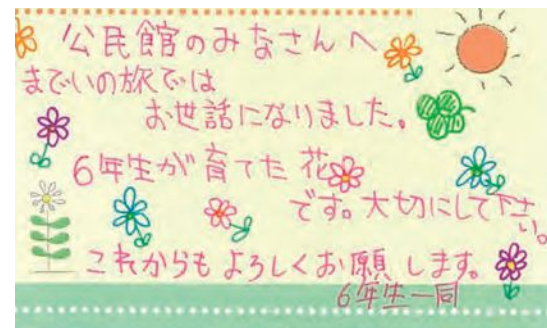 公民館のみなさんへ
までいの旅では
お世話になりました。
6年生が育てた花
です。大切にして下さい。
これからもよろしくお願いします。
6年生一同